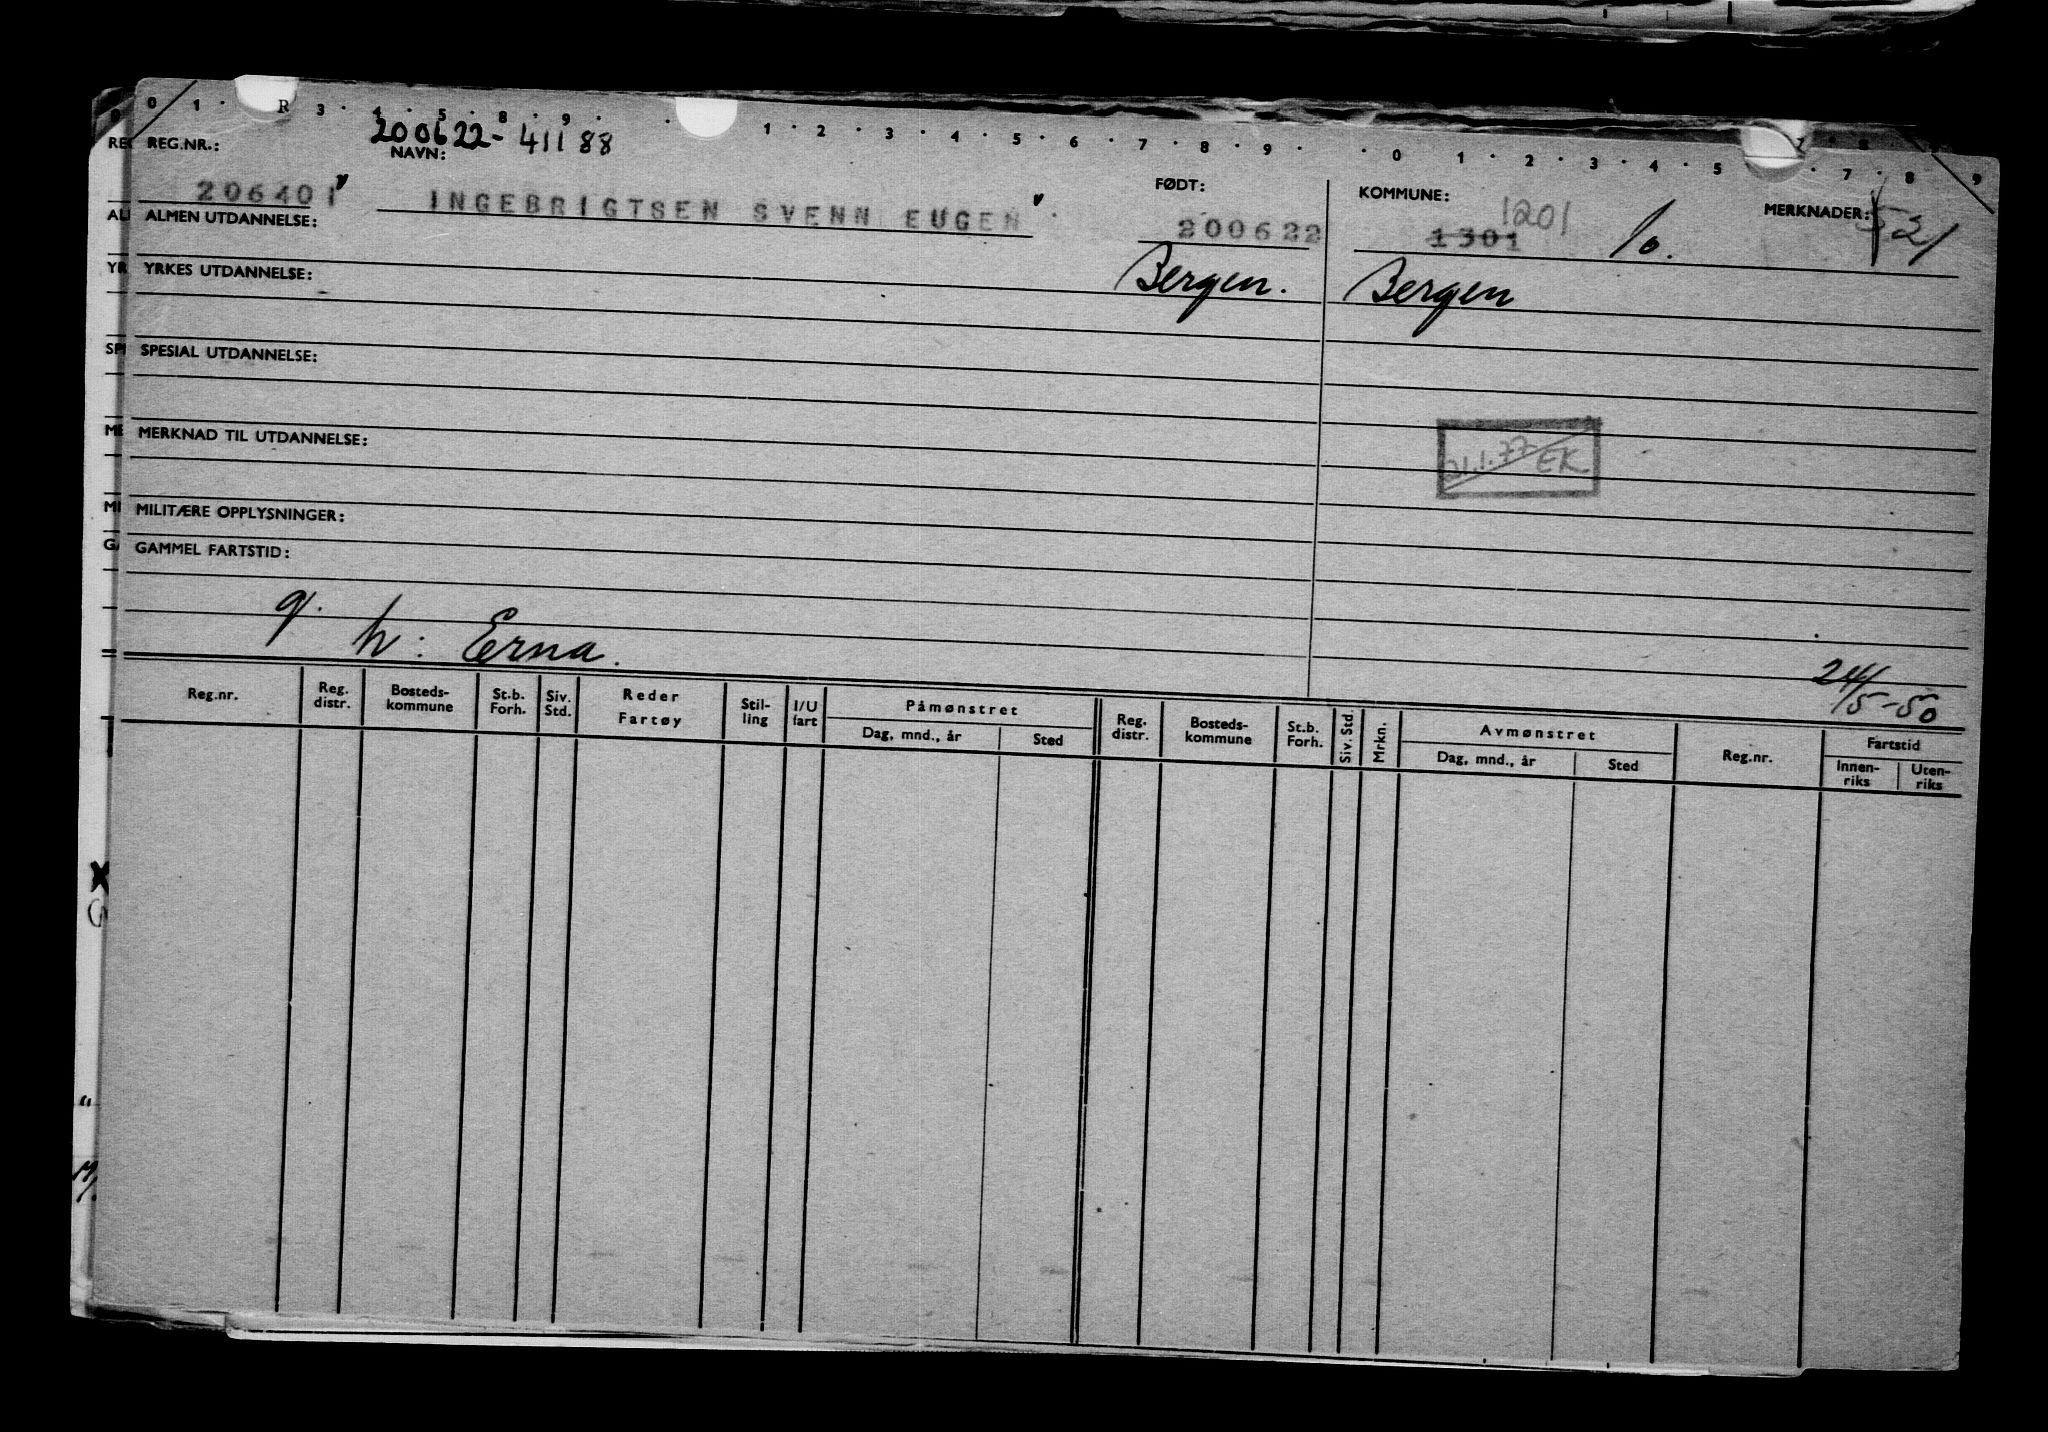 0 1 · R 3 · 4 · 5 · 8 · 9 · · 1 · 2 · 3 · 4 · 5 · 6 · 7 · 8 · 9 · · 0 · 1 · 2 · 3 · 4 · 5 · 7 · 8 · 9
200622-41188
REG.NR.: NAVN: FØDT: KOMMUNE: MERKNADER:
206401 INGEBRIGTSEN SVENN EUGEN 200622 1301 1201
ALMEN UTDANNELSE:
Bergen. Bergen
YRKES UTDANNELSE:
SPESIAL UTDANNELSE:
MERKNAD TIL UTDANNELSE:
21.1.77 EK
MILITÆRE OPPLYSNINGER:
GAMMEL FARTSTID:
g. h: Erna.
24/5-50
Reg.nr. Reg. distr. Bosteds-kommune St.b. Forh. Siv. Std. Reder Fartøy Stil-ling I/U fart Påmønstret Reg. distr. Bosteds-kommune St.b. Forh. Siv. Std. Mrkn. Avmønstret Reg.nr. Fartstid
Dag, mnd., år Sted Dag, mnd., år Sted Innen-riks Uten-riks